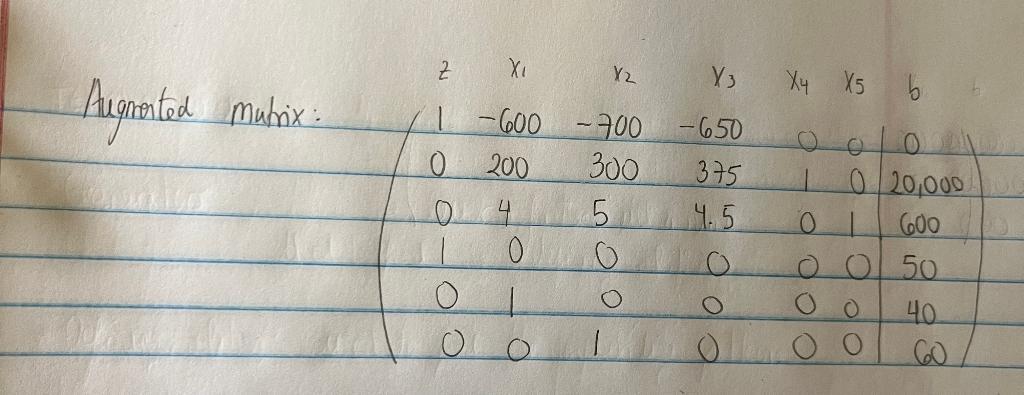 z x₁ x₂ x₃ x₄ x₅ b
Augmented matrix:
1 -600 -700 -650 0 0 0
0 200 300 375 1 0 20,000
0 4 5 4.5 0 1 600
1 0 0 0 0 0 50
0 1 0 0 0 0 40
0 0 1 0 0 0 60